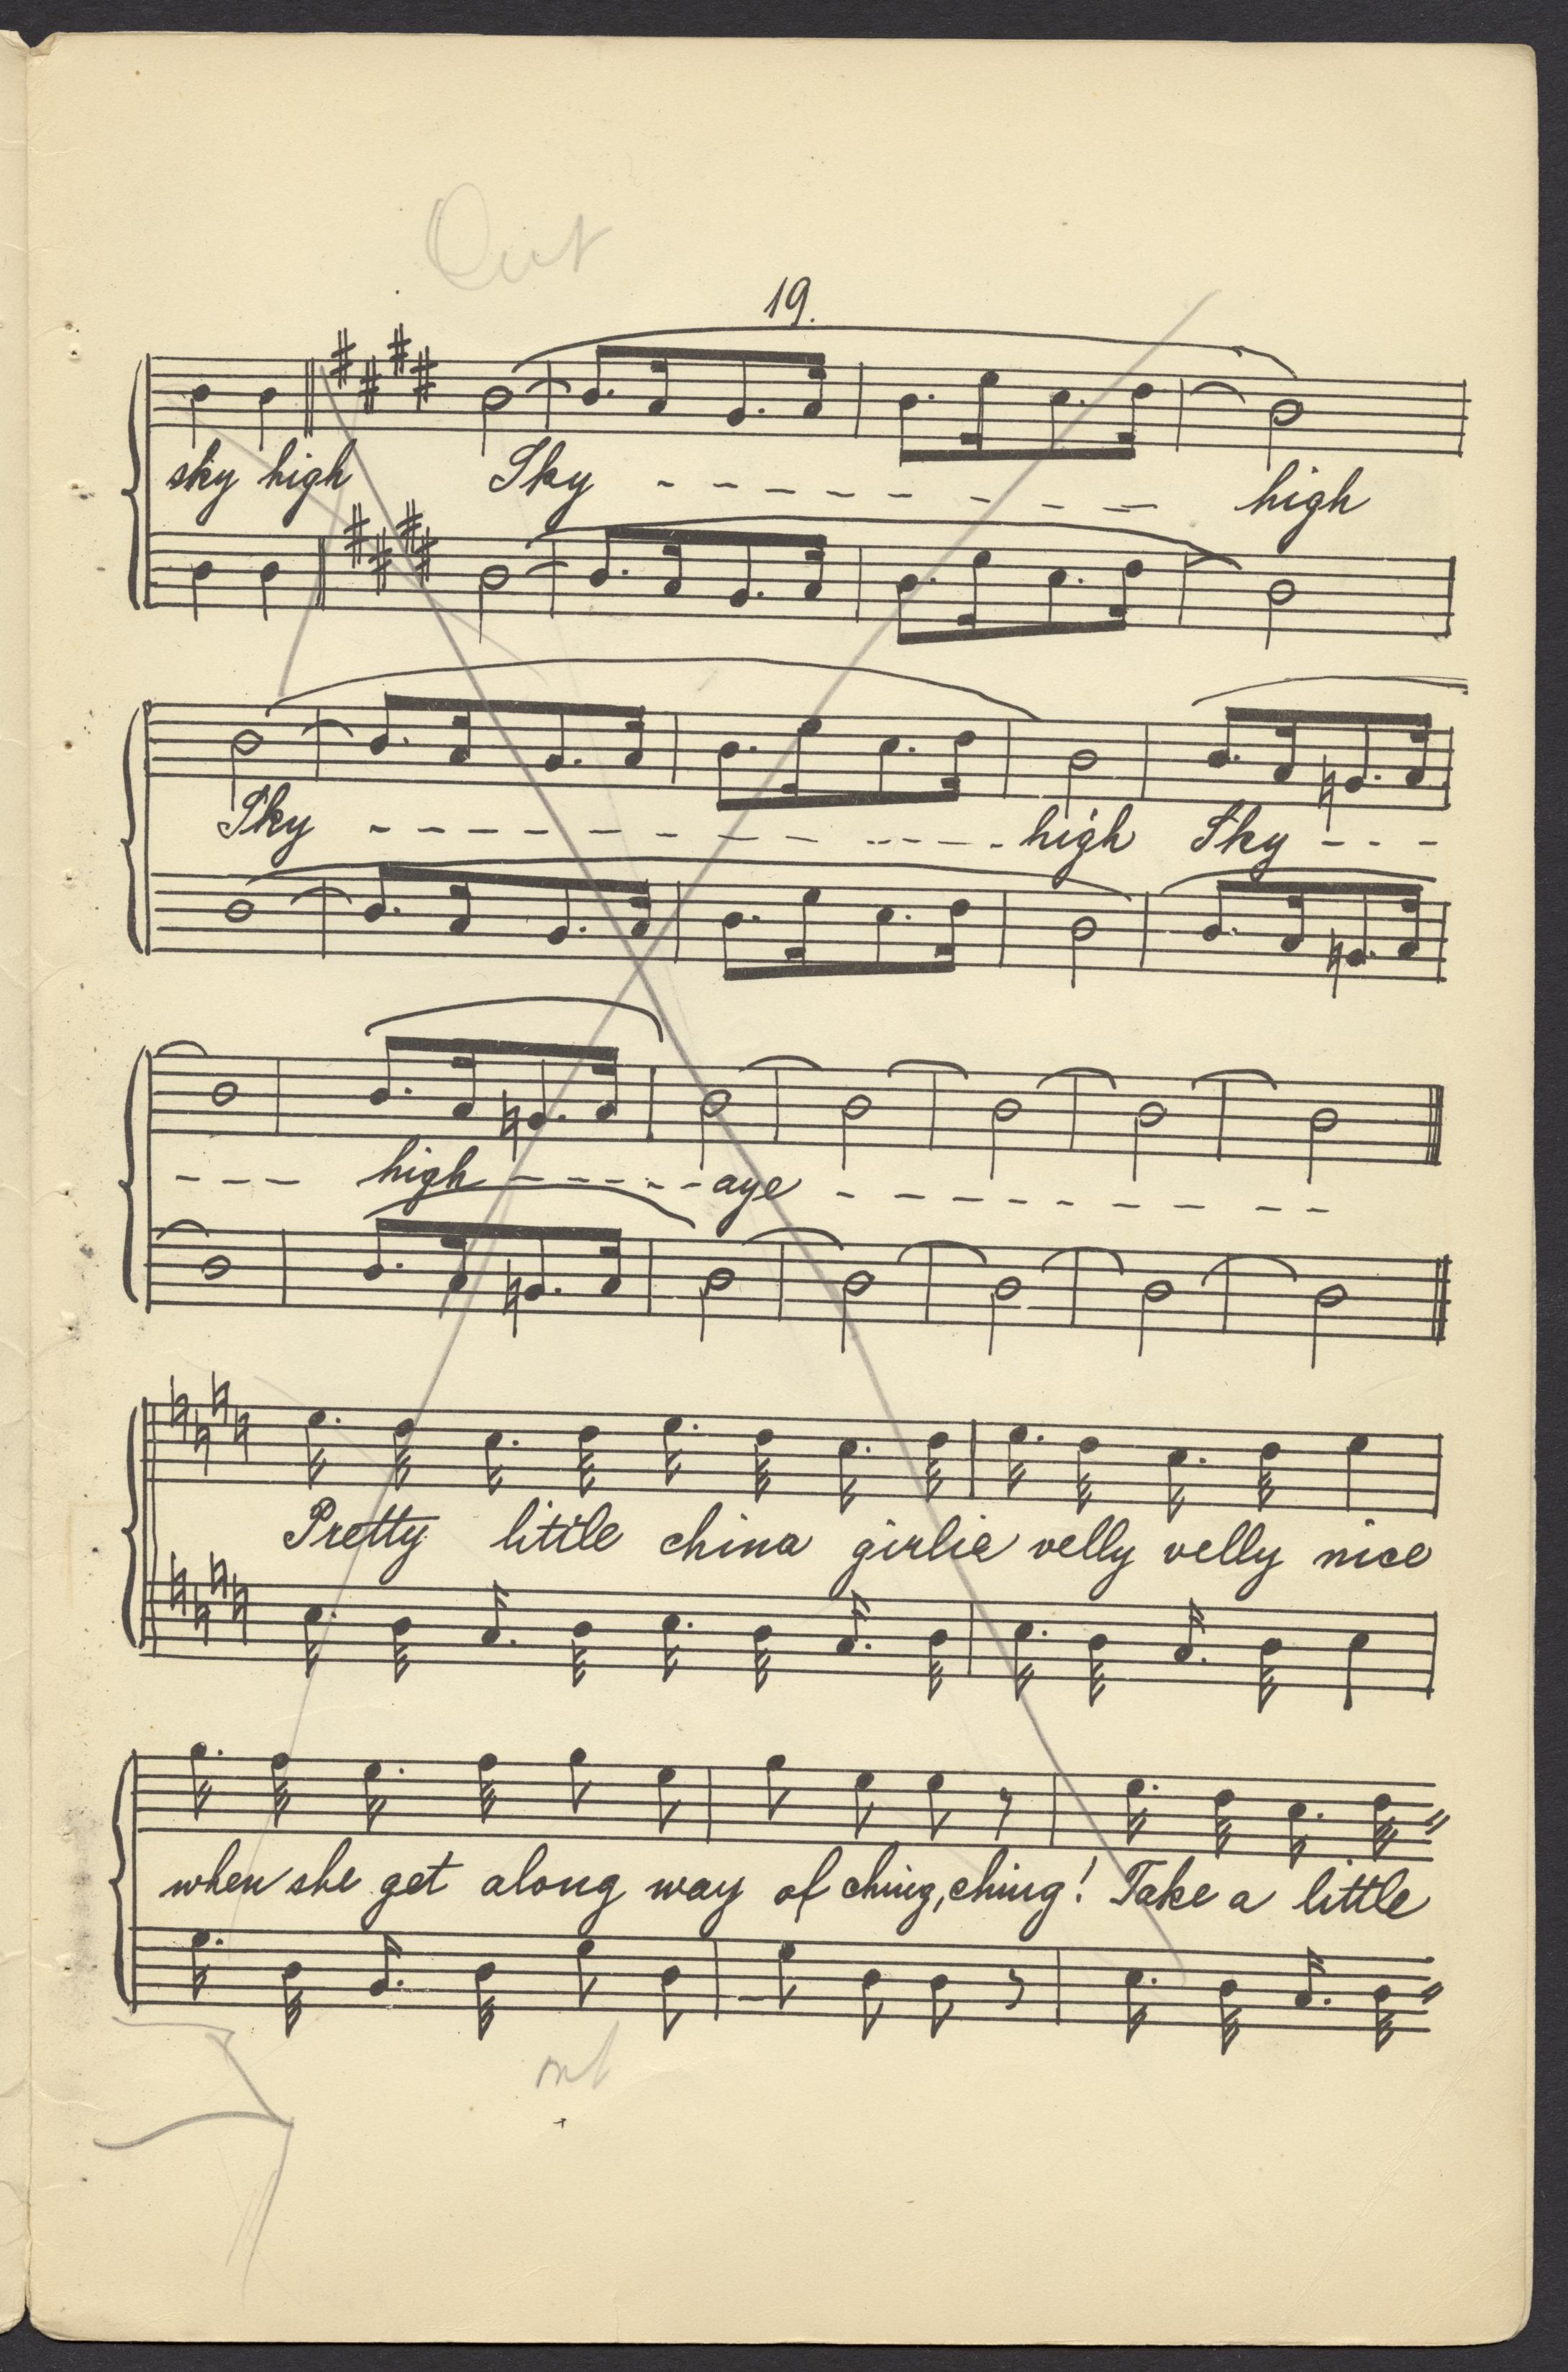 Out
19.
sky high Sky - - - - - - - - high
Sky - - - - - - - - - - - - - high Sky - - -
- - - high - - - - - aye - - - - - - - - -
Pretty little china girlie velly velly nice
when she get along way of ching, ching! Take a little